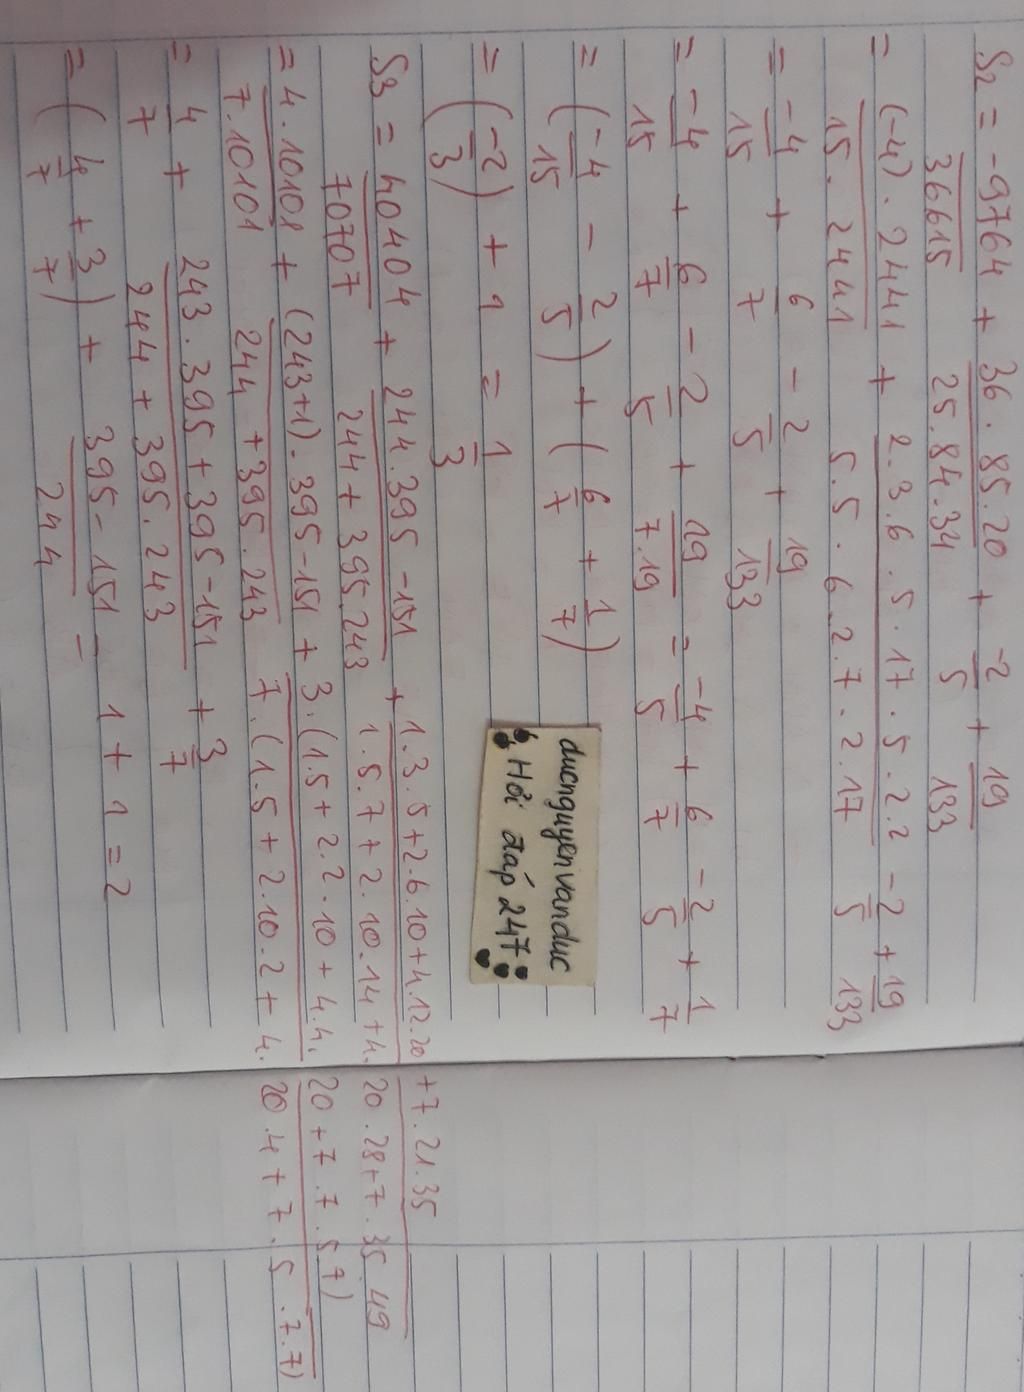 S2 = -9764/36615 + 36.85.20/25.84.34 + -2/5 + 19/133
= (-4).2441/15.2441 + 2.3.6.5.17.5.2.2/5.5.6.2.7.2.17 - 2/5 + 19/133
= -4/15 + 6/7 - 2/5 + 19/133
= -4/15 + 6/7 - 2/5 + 19/7.19 = -4/5 + 6/7 - 2/5 + 1/7
= (-4/15 - 2/5) + (6/7 + 1/7)
= (-2/3) + 1 = 1/3
ducnguyenvanduc
Hỏi đáp 247
S3 = 40404/70707 + 244.395-151/244+395.243 + 1.3.5+2.6.10+4.12.20+7.21.35/1.5.7+2.10.14+4.20.28+7.35.49
= 4.10101/7.10101 + (243+1).395-151/244+395.243 + 3.(1.5+2.2.10+4.4.20+7.7.5.7)/7.(1.5+2.10.2+4.20.4+7.5.7.7)
= 4/7 + 243.395+395-151/244+395.243 + 3/7
= (4/7 + 3/7) + 395-151/244 = 1+1=2